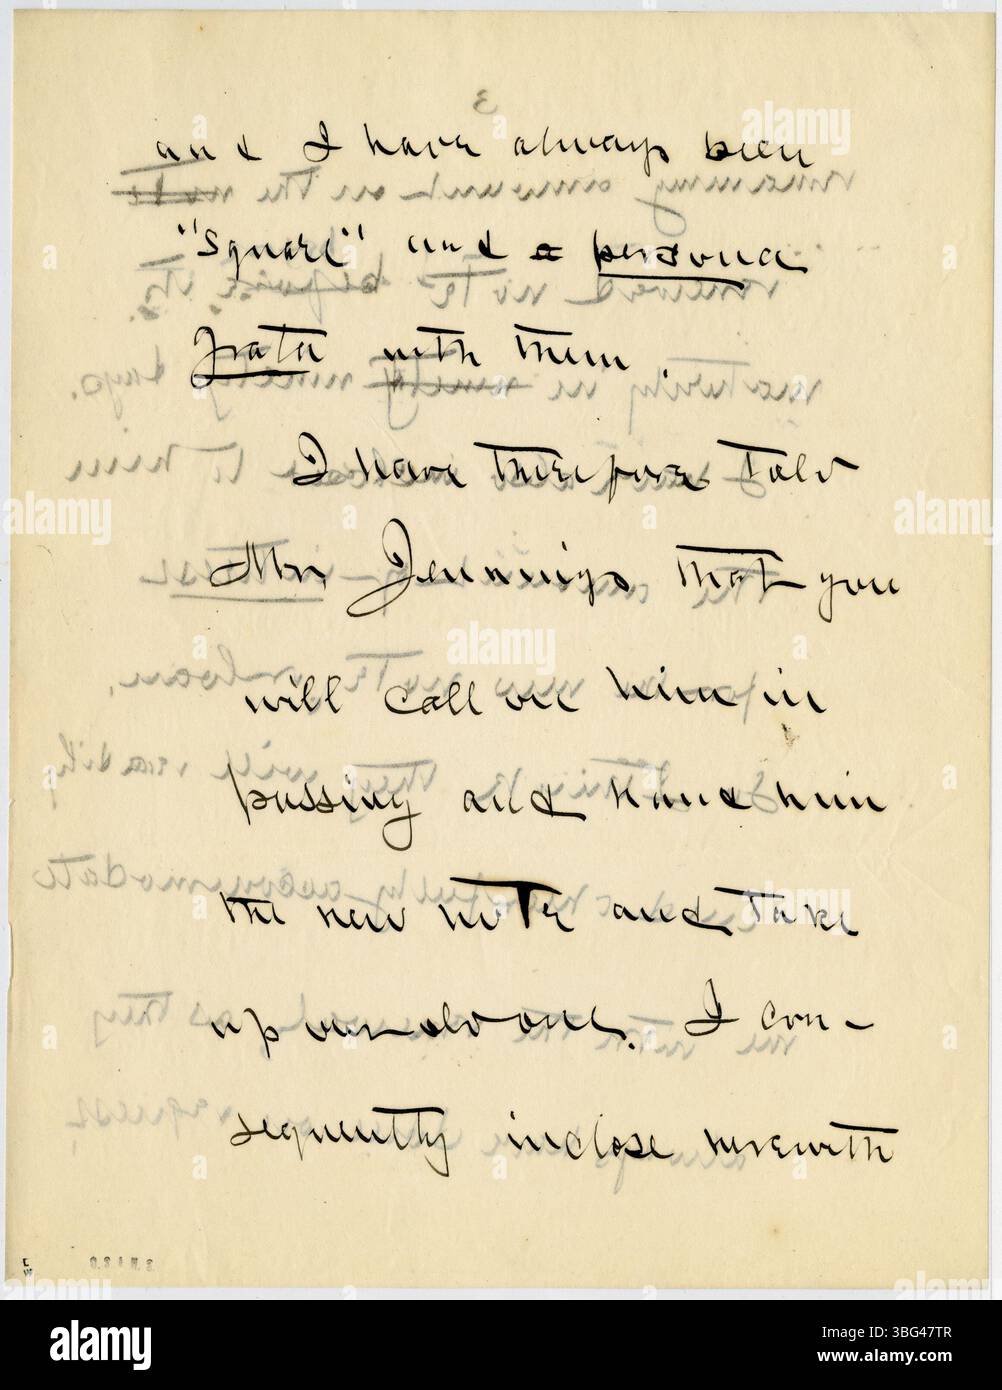 and I have always been
"square" and a persona
grata with them.
I have therefore told
Mr. Jennings that you
will call on him in
passing and hand him
the new note and take
up our old one. I con-
sequently inclose herewith
alamy
Image ID: 3BG47TR
www.alamy.com